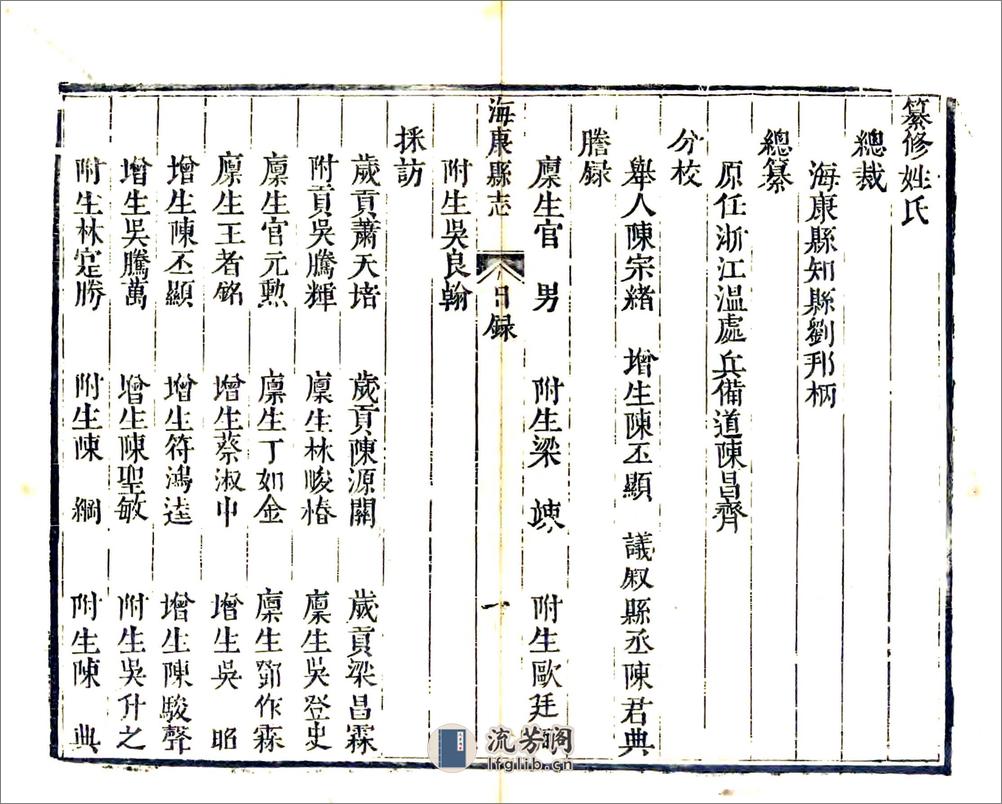 纂修姓氏
總裁
海康縣知縣劉邦柄
總纂
原任浙江溫處兵備道陳昌齊
分校
舉人陳宗緒 增生陳丕顯 議叙縣丞陳君典
謄録
廩生官 男 附生梁 竦 附生歐廷
海康縣志 目録 一
附生吳良翰
採訪
歲貢蕭天堵 歲貢陳源開 歲貢梁昌霖
附貢吳騰輝 廩生林畯椿 廩生吳登史
廩生官元勲 廩生丁如金 廩生鄧作霖
廩生王者銘 增生蔡淑中 增生吳 昭
增生陳丕顯 增生符鴻逵 增生陳駿聲
增生吳騰萬 增生陳聖敏 附生吳升之
附生林定勝 附生陳 綱 附生陳 典
流芳阁
lfglib.cn